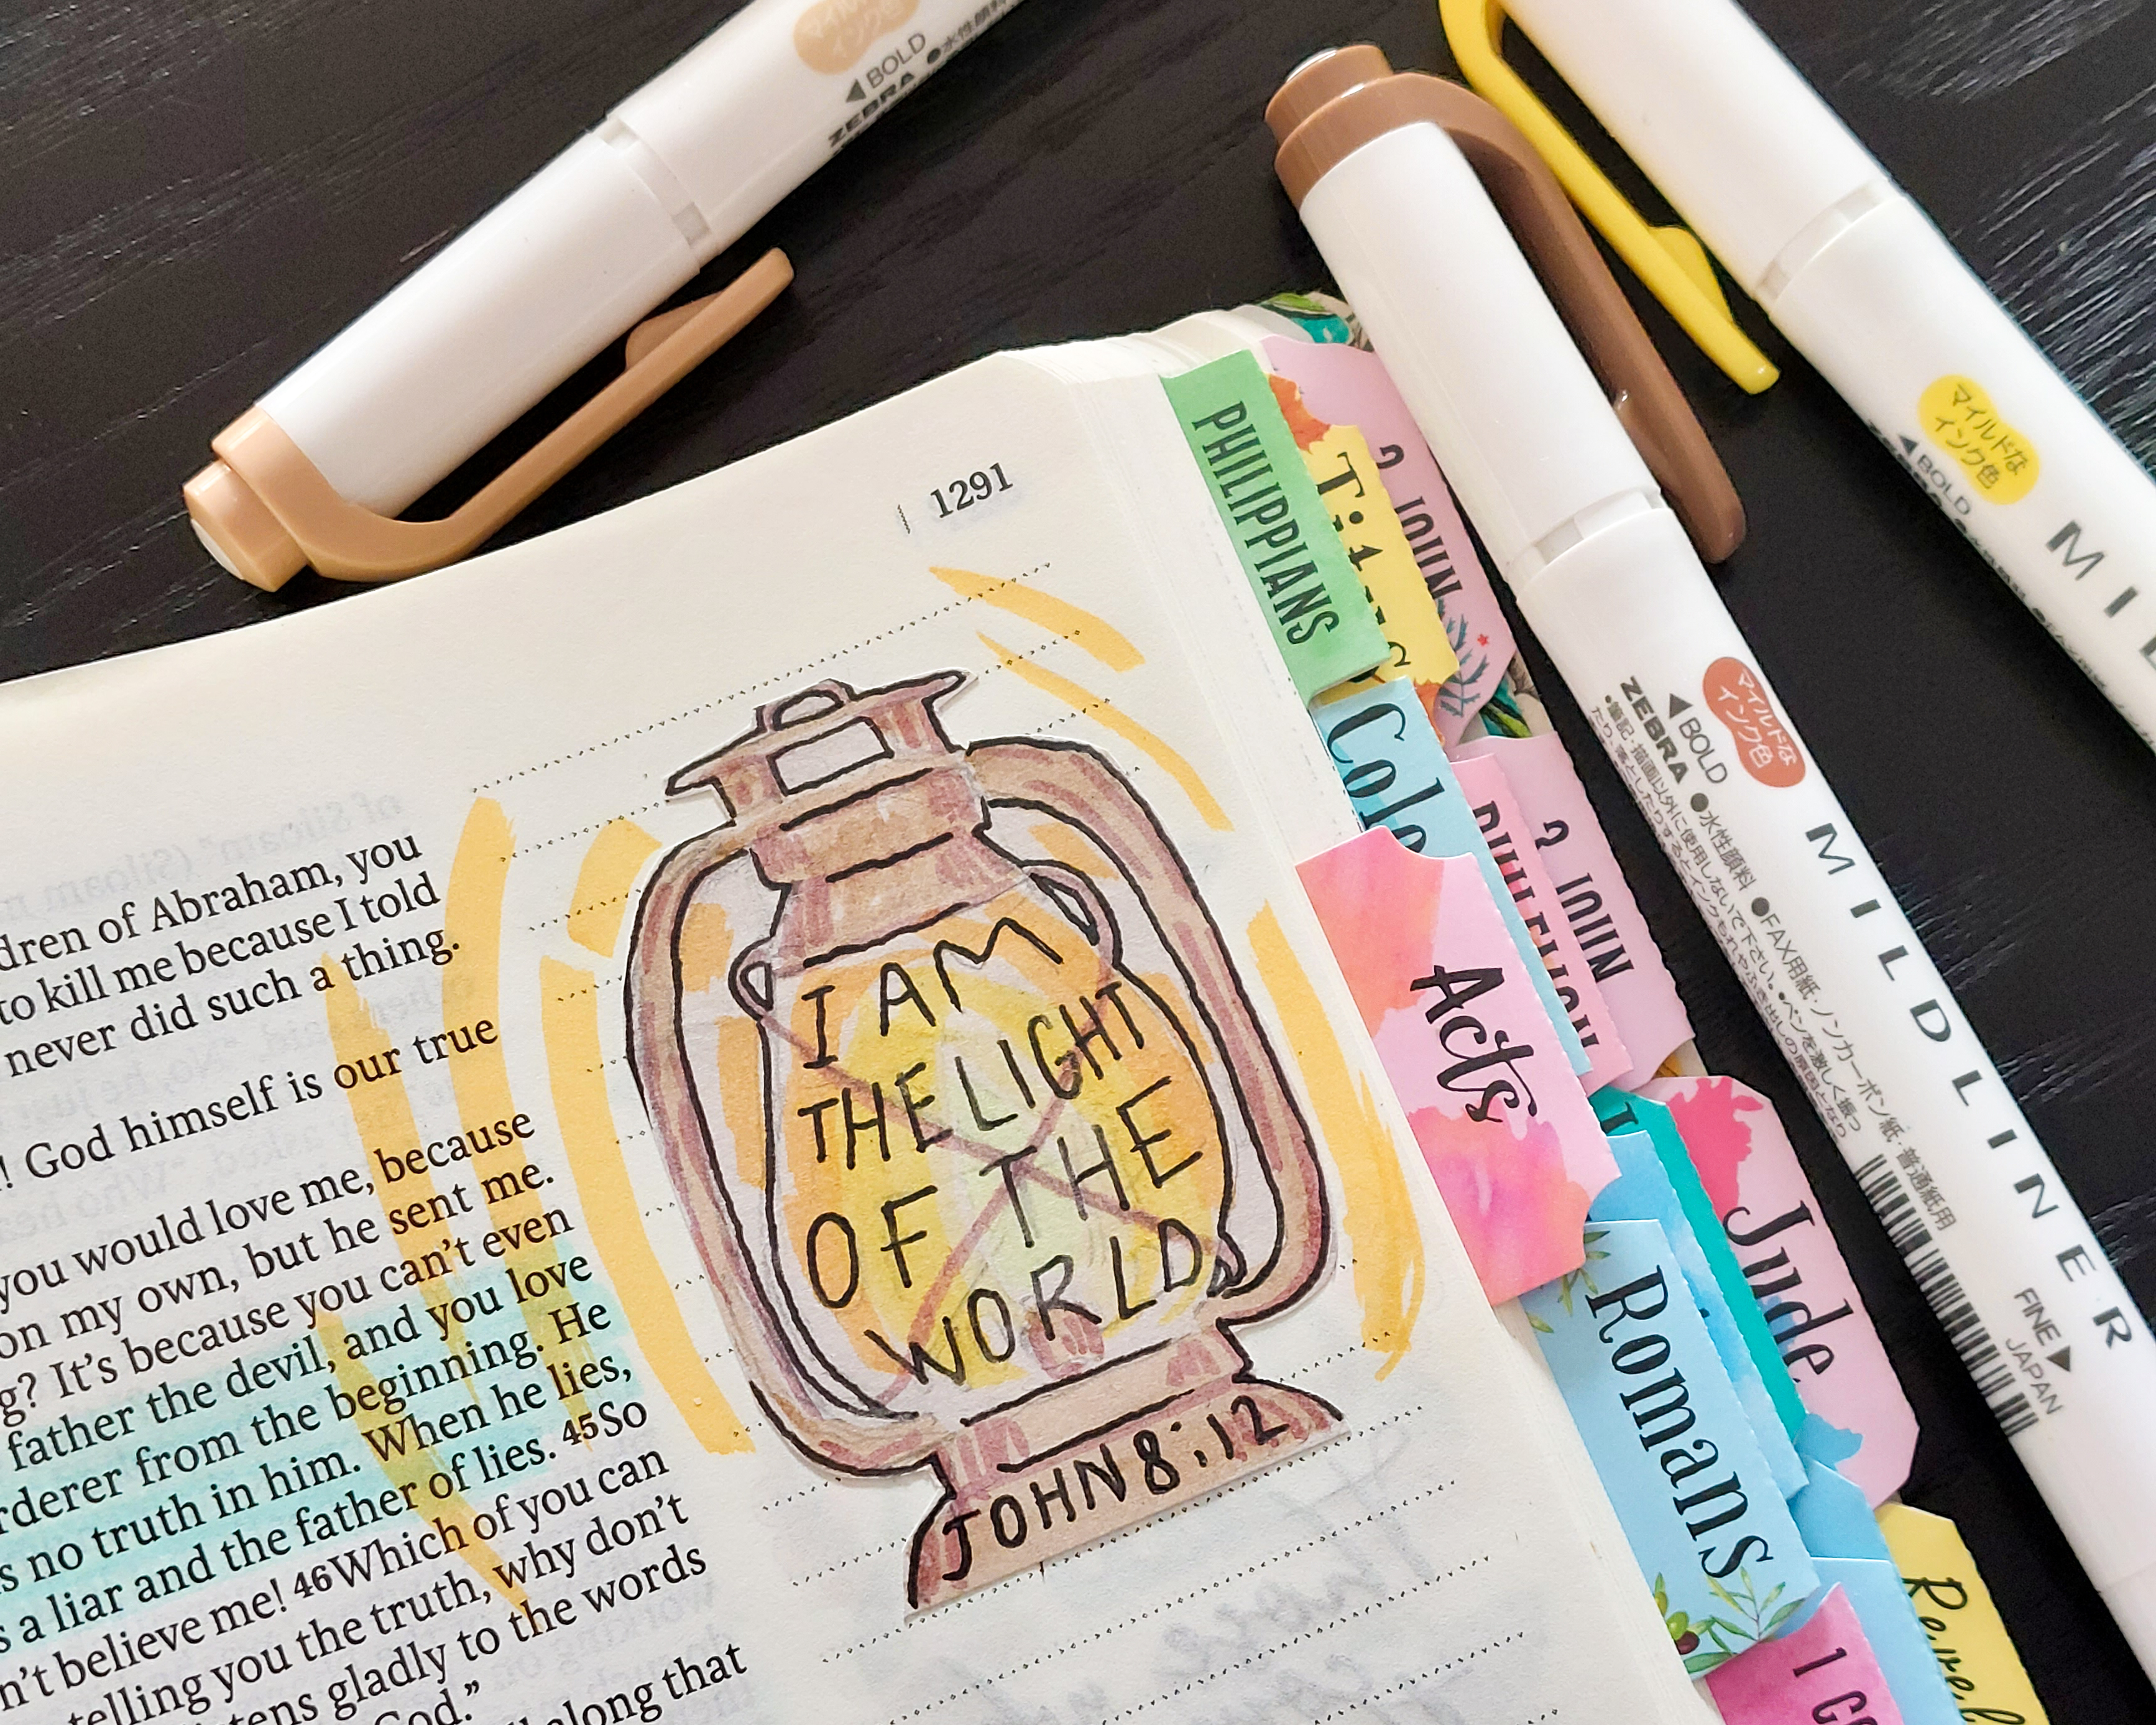 1291
dren of Abraham, you
to kill me because I told
never did such a thing.
! God himself is our true
you would love me, because
on my own, but he sent me.
g? It's because you can't even
father the devil, and you love
rderer from the beginning. He
s no truth in him. When he lies,
s a liar and the father of lies. 45So
n't believe me! 46Which of you can
telling you the truth, why don't
tens gladly to the words
God."
along that
I AM
THE LIGHT
OF THE
WORLD
JOHN 8:12
PHILIPPIANS
Titus
2 JOHN
Colo
PHILEMON
2 JOHN
Acts
Jude
Romans
Revel
1 CO
マイルドな
インク色
◀BOLD
ZEBRA ●水性顔料
マイルドな
インク色
◀BOLD
ZEBRA ●水性顔料 ●FAX用紙・ノンカーボン紙・普通紙用
MILDLINER
FINE▶
JAPAN
マイルドな
インク色
◀BOLD
MIL